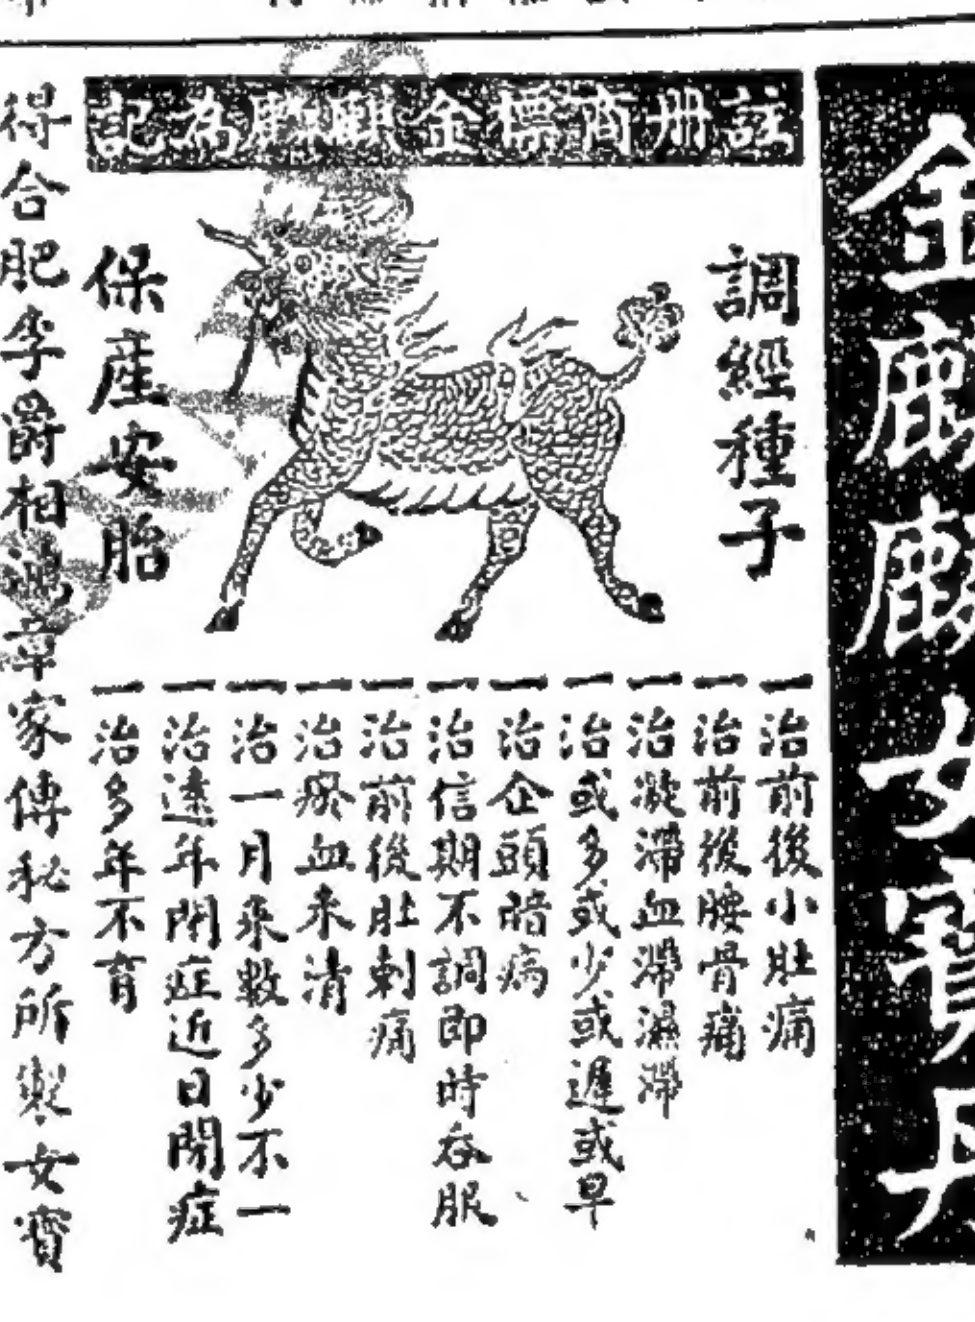 金麒麟女寶丹
註冊商標金麒麟為記
調經種子
保產安胎
一治前後小肚痛
一治前後腰骨痛
一治凝滯血滯濕滯
一治或多或少或遲或早
一治企頭暗病
一治信期不調即時吞服
一治前後肚刺痛
一治瘀血未清
一治一月來數多少不一
一治遠年閉症近日閉症
一治多年不育
得合肥李爵相鴻章家傳秘方所製女寶